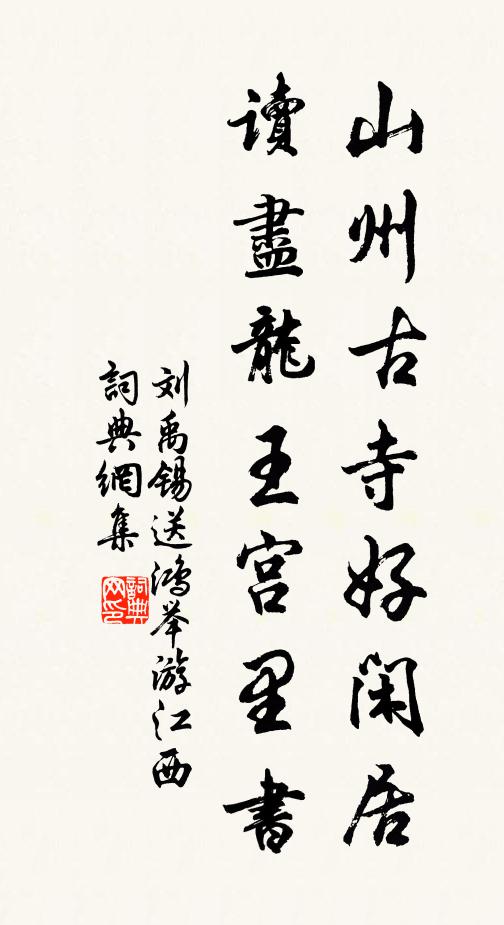 山州古寺好閑居
讀盡龍王宮里書
刘禹锡送鸿举游江西
詞典網集
詞典網印